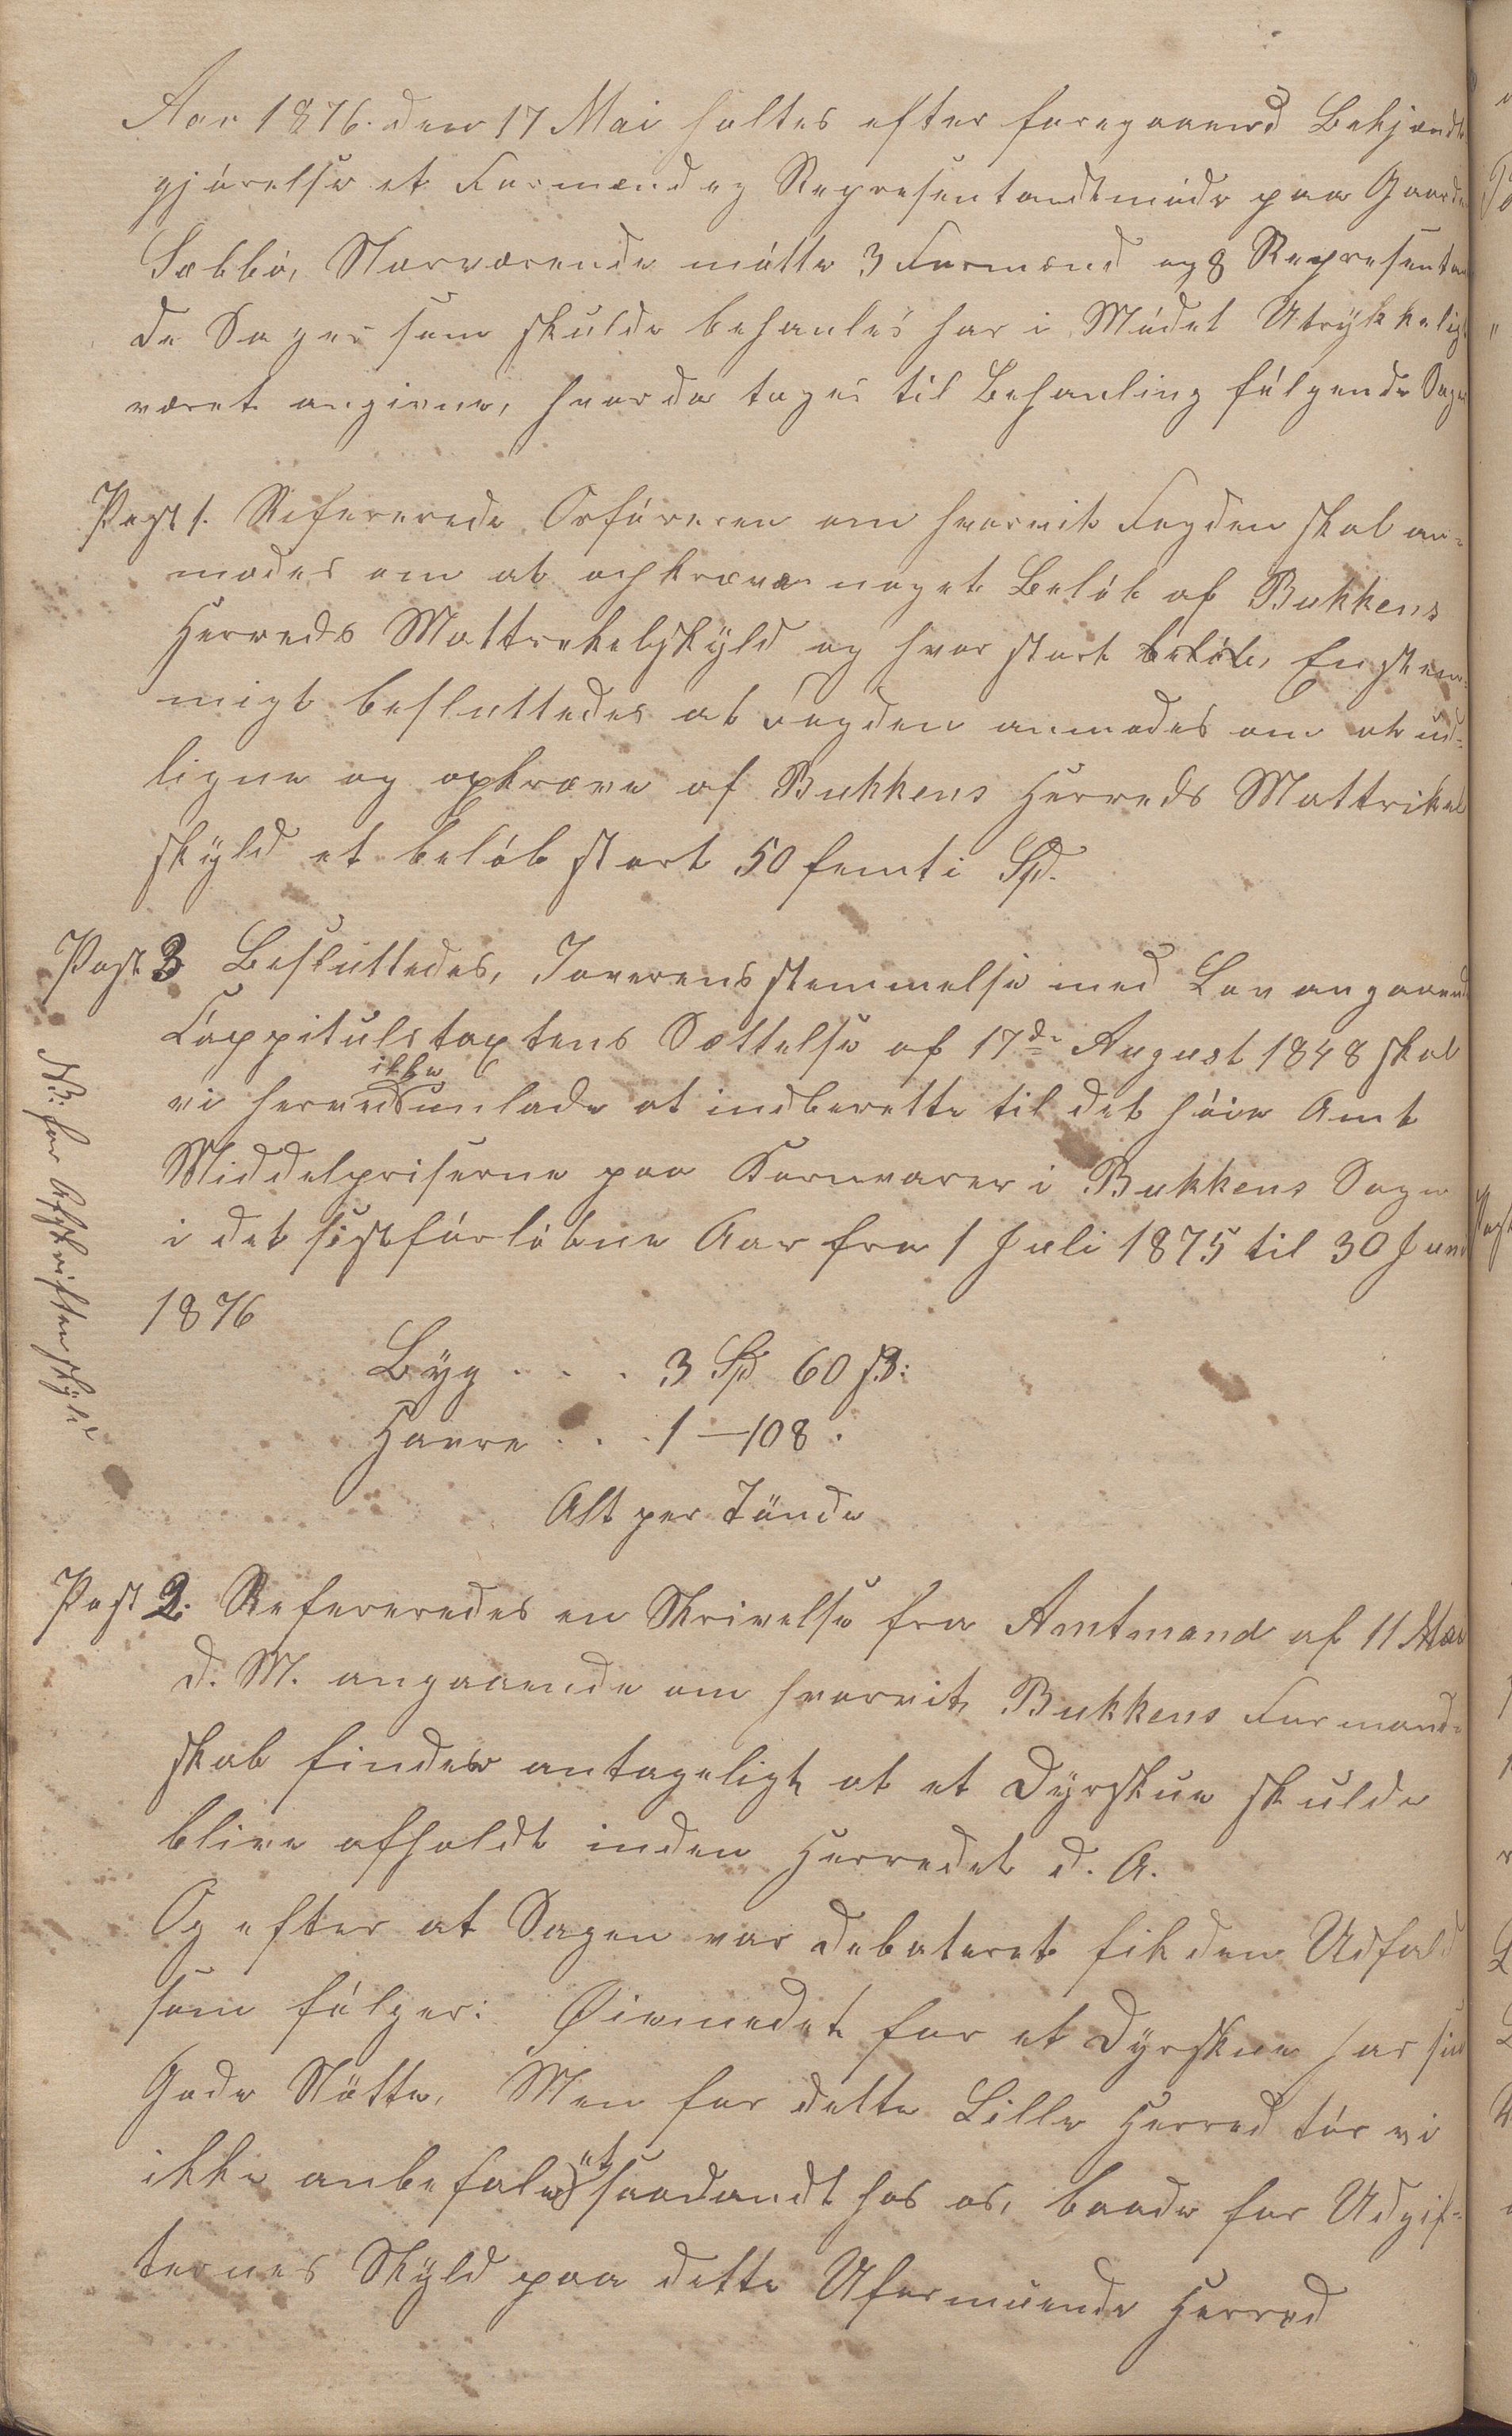 Aar 1876. den 17 Mai holtes efter foregaaend Bekjendt
gjørelse et Formend og Representandtmøde paa Gaarden
Sæbbø, Nærværende møtte 3 Formænd og 8 Representan
de Sager som skulde behanles har i Mødet Utrykkeligt
været angivne, hvorda tages til Behanling følgende Sager
Post 1. Refererede Orføreren om hvorvit Fogden skal an-
modes om at opkræve noget Beløb af Bukkens
Herreds Mattrekelskyld og hvor stort beløb, Enstem-
migt besluttedes at Fogden anmodes om at ud-
ligne og opkræve af Bukkens Herreds Mattrikel
skyld et beløb stort 50 femti Spd.
Post 3 Besluttedes, Toverensstemmelse med Lov angaaende
Cappitulstaxtens Sættelse af 17de August 1848 skal
ikke
vi herved unlade at indberette til det høie Amt
Middelpriserne paa Kornvarer i Bukkens Sogn
i det sistforløbne Aar fra 1 Juli 1875 til 30 Juni
1876
Byg . . . 3 Spd 60 ß:
Havre . . . 1 — 108 .
Alt per Tønde
Post 2. Refereredes en Skrivelse fra Amtmand af 11 Mai
d. M. angaaende om hvorvit Bukkens Formand-
skab finder antageligt at et Dyrskue skulde
blive afholdt inden Herredet d. A.
Og efter at Sagen var debateret fik den Udfald
som følger: Øiemedet for et Dyrskue har sin
Gode Nøtte, Men for dette Lille Herred tør vi
ikke anbefale et saadandt hos os, baade for Udgif-
ternes Skyld paa dette Uformuende Herred
NB. for Afskriften skyld